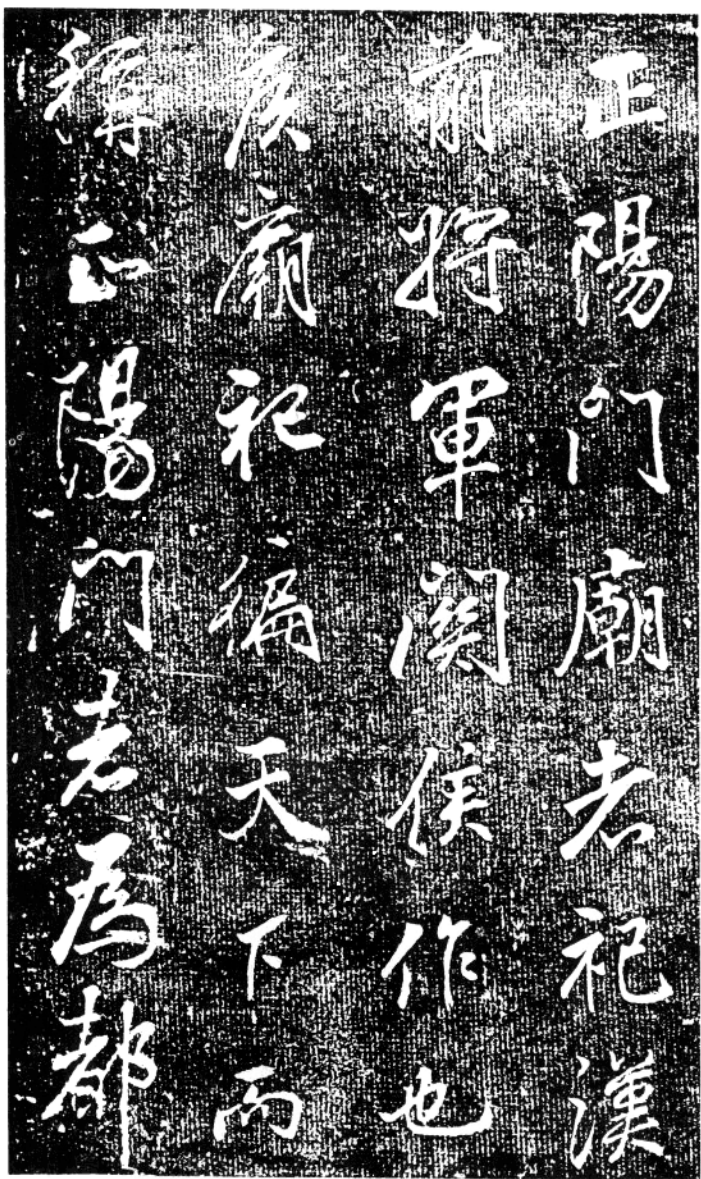 正陽門廟者祀漢
前將軍関侯作也
侯廟祀徧天下而
稱正陽門者為都